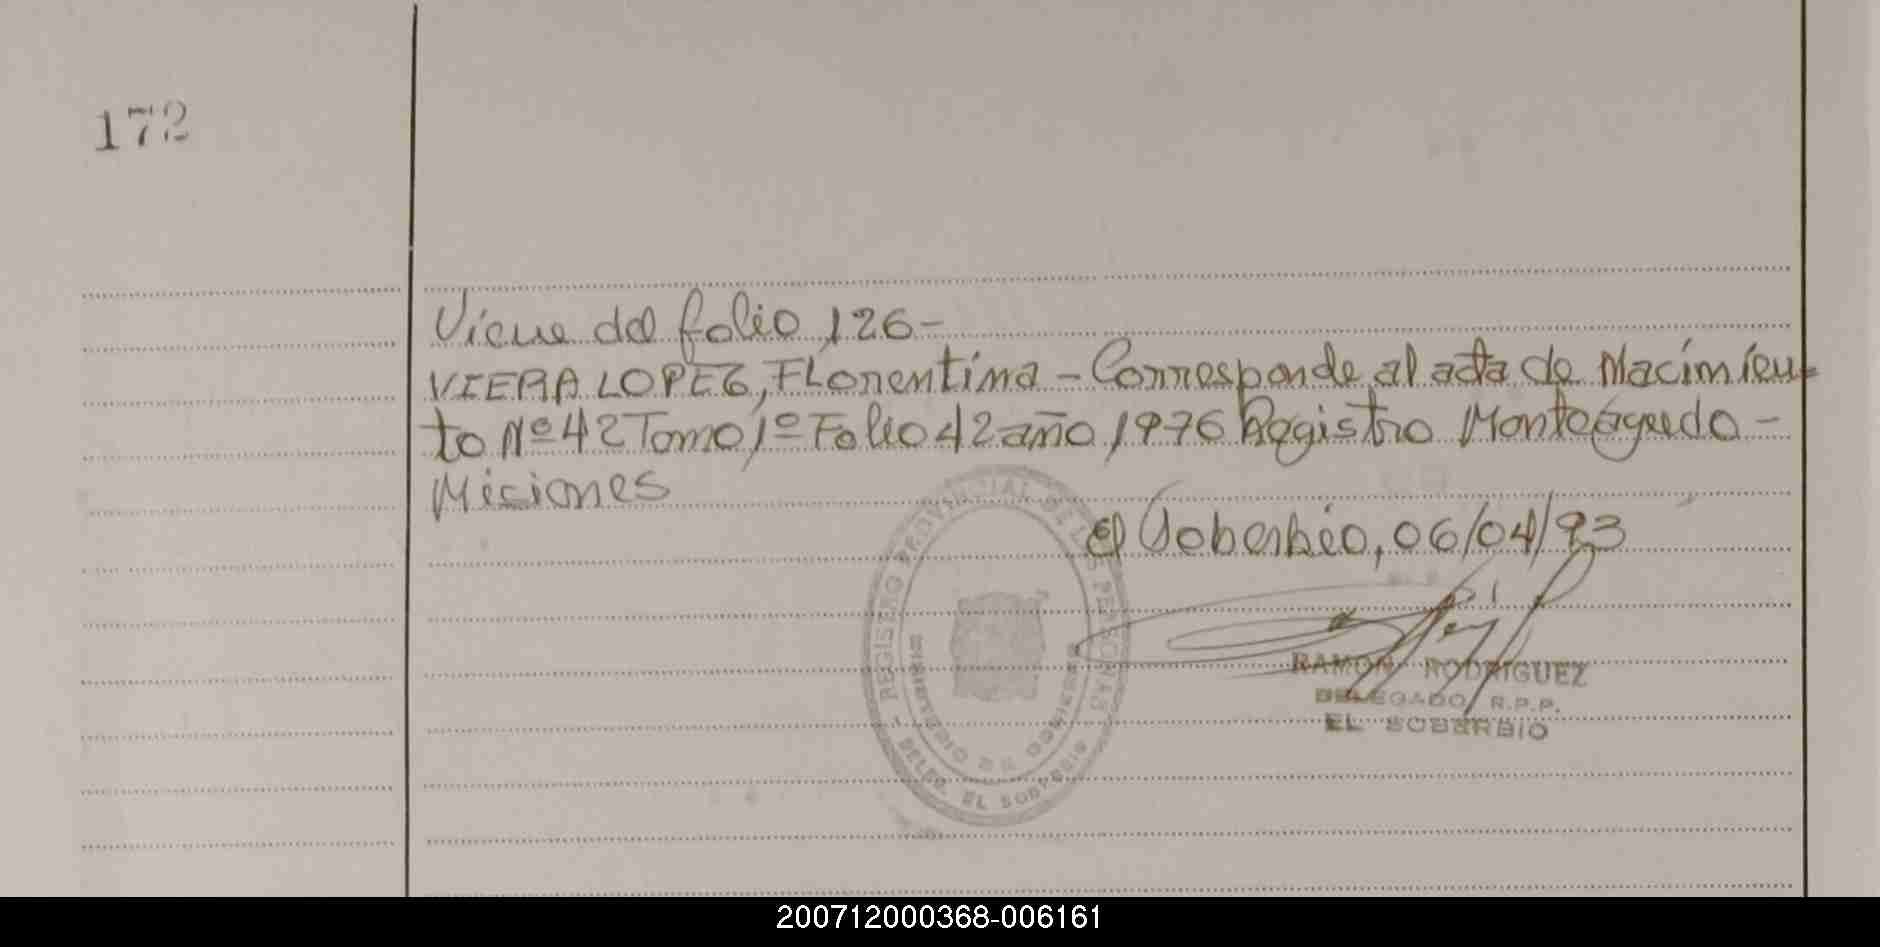 172
Viene del folio 126-
VIERA LOPEZ, FLorentina - Corresponde al acta de Nacimien-
to Nº 42 Tomo 1º Folio 42 año 1976 Registro Monteagudo -
Misiones
El Soberbio, 06/04/93
REGISTRO PROVINCIAL DE LAS PERSONAS
MINISTERIO DE GOBIERNO
- DELEG. EL SOBERBIO -
RAMON RODRIGUEZ
DELEGADO R.P.P.
EL SOBERBIO
200712000368-006161